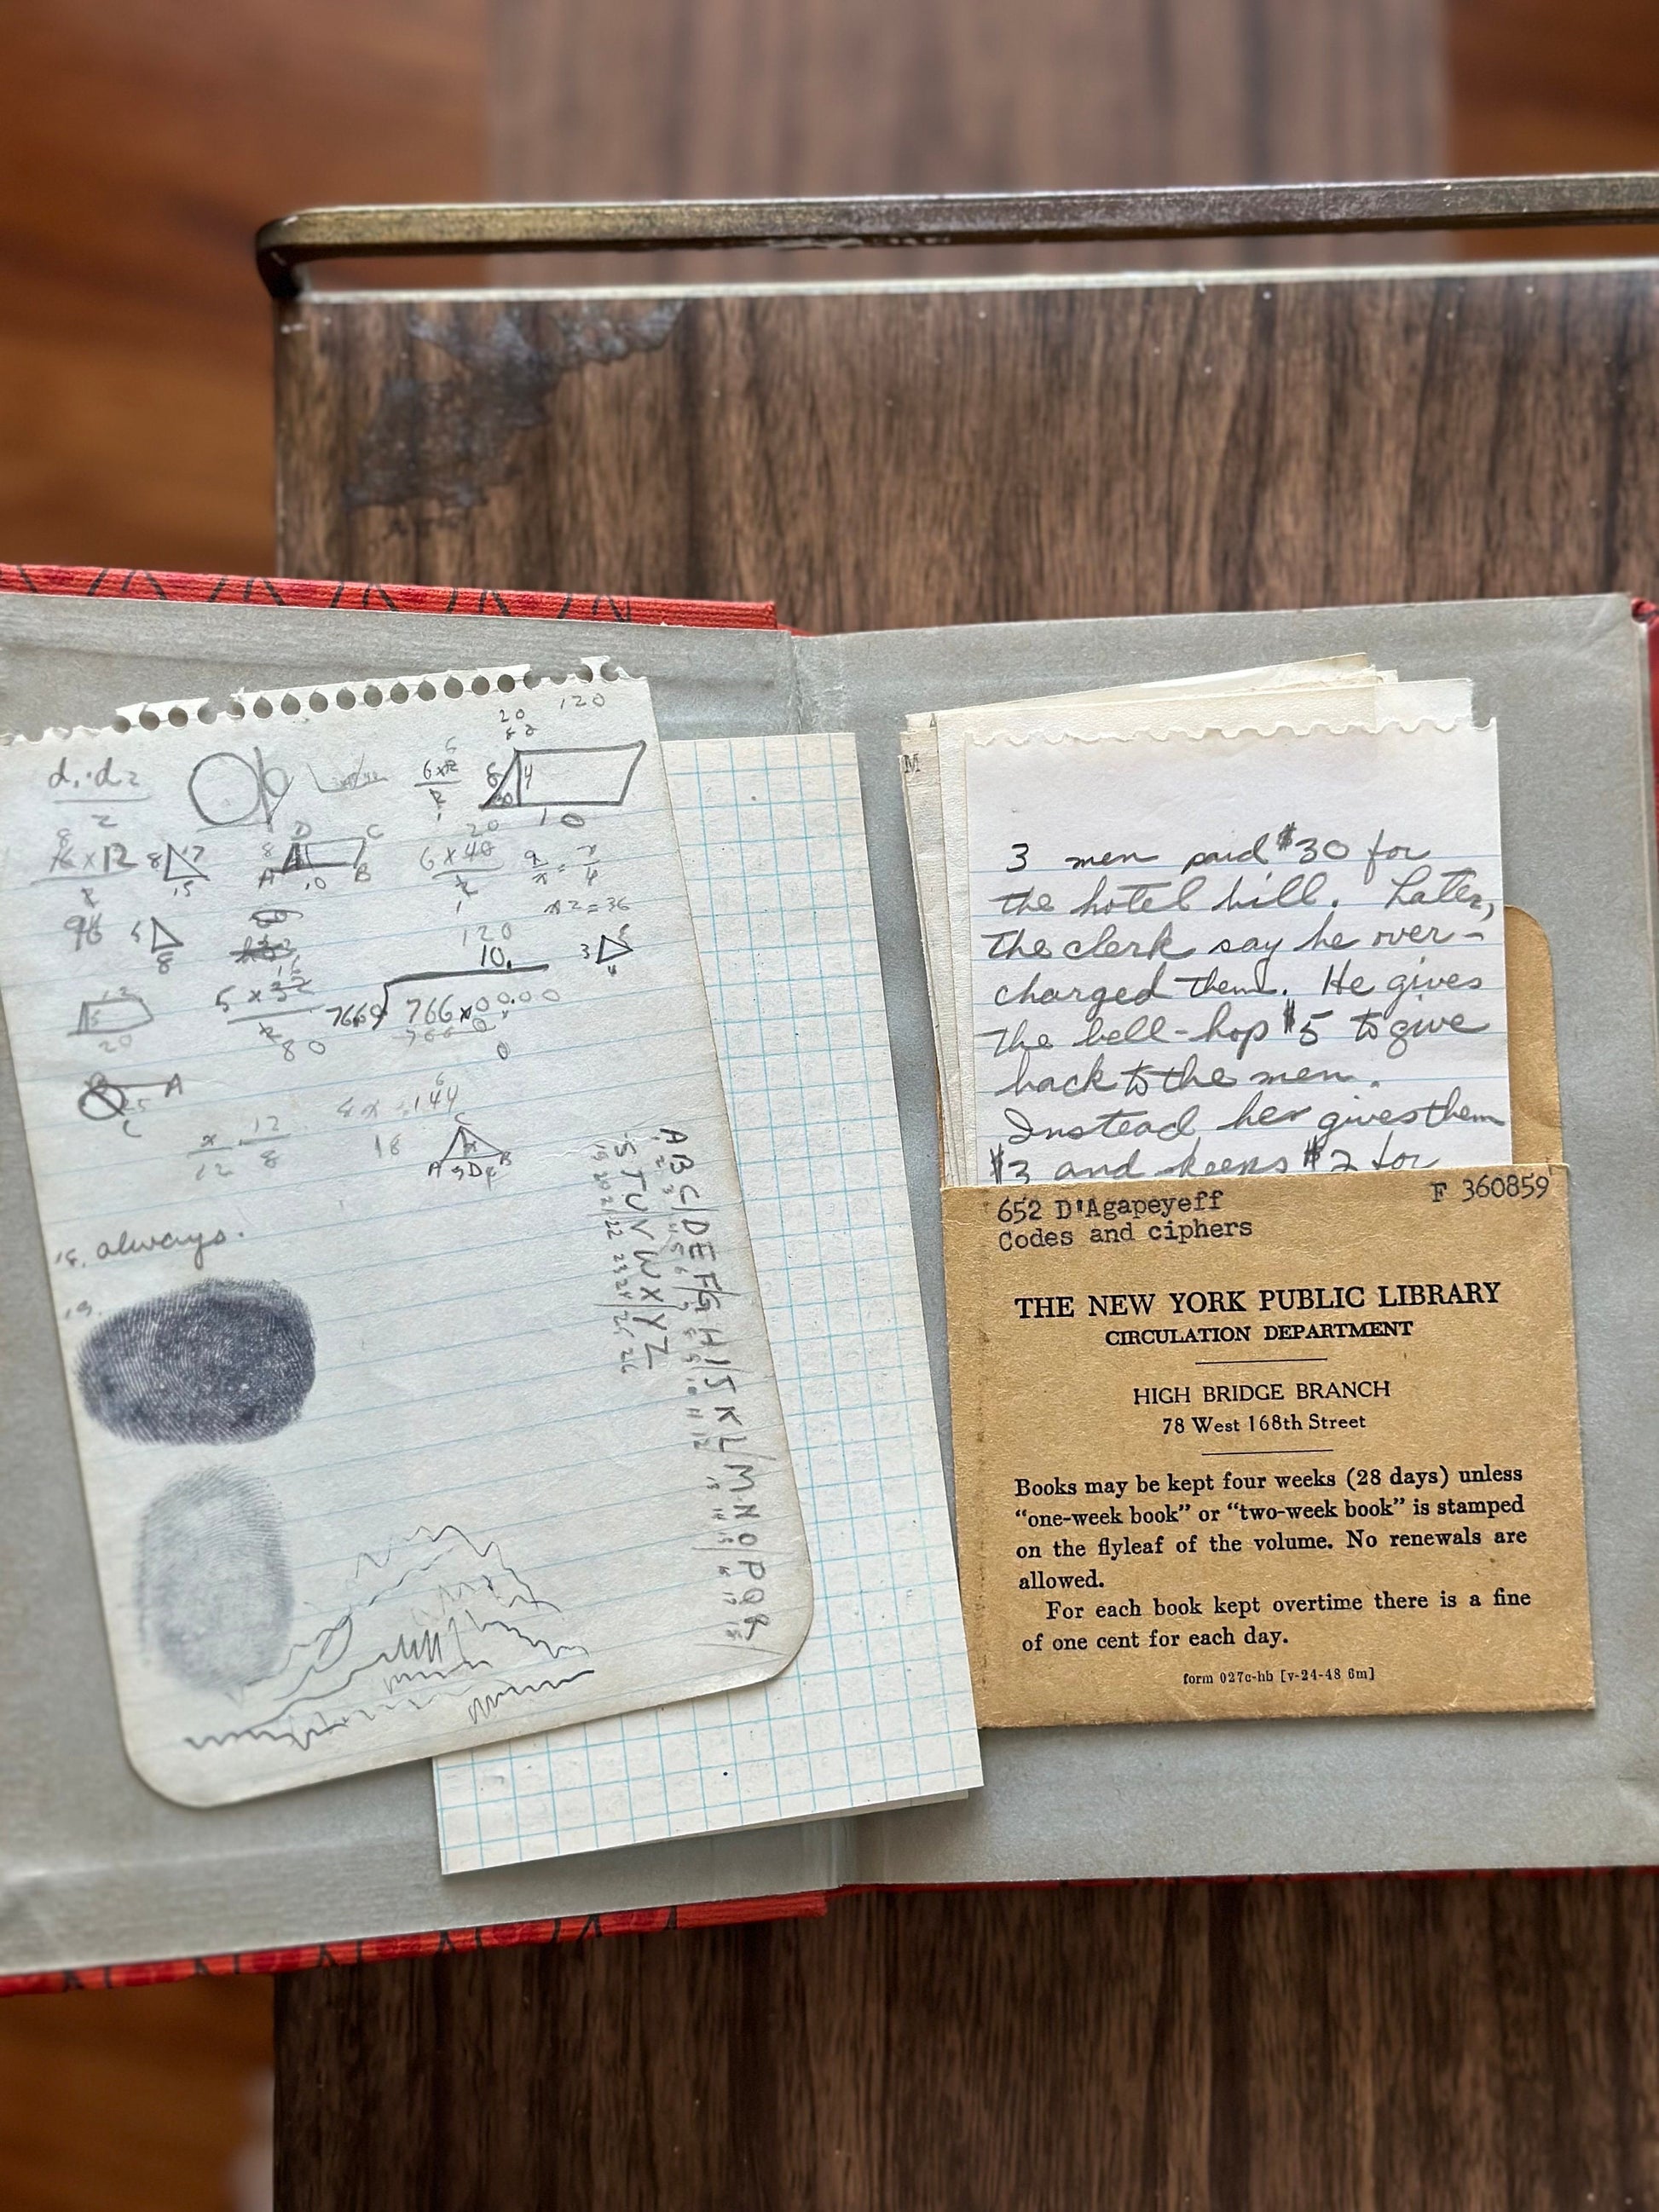 120
20
d₁·d₂
2
6
4
10
20
D C
A B
10
8 17
15
6 x 40
120
x² = 36
96
5
8
3
4
5 x 32
80
10.
7669 766x00.00
0
20
A
C
x 12
12 8
8x = 144
18
C
A 9 D 4 B
18. always.
19.
A B C D E F G H I J K L M N O P Q R
S T U V W X Y Z
19 20 21 22 23 24 25 26
M
3 men paid $30 for
the hotel bill. Later,
the clerk say he over-
charged them. He gives
the bell-hop $5 to give
back to the men.
Instead, her gives them
$3 and keeps $2 for
652 D'Agapeyeff F 360859
Codes and ciphers
THE NEW YORK PUBLIC LIBRARY
CIRCULATION DEPARTMENT
HIGH BRIDGE BRANCH
78 West 168th Street
Books may be kept four weeks (28 days) unless
"one-week book" or "two-week book" is stamped
on the flyleaf of the volume. No renewals are
allowed.
For each book kept overtime there is a fine
of one cent for each day.
form 027c-hb [v-24-48 6m]